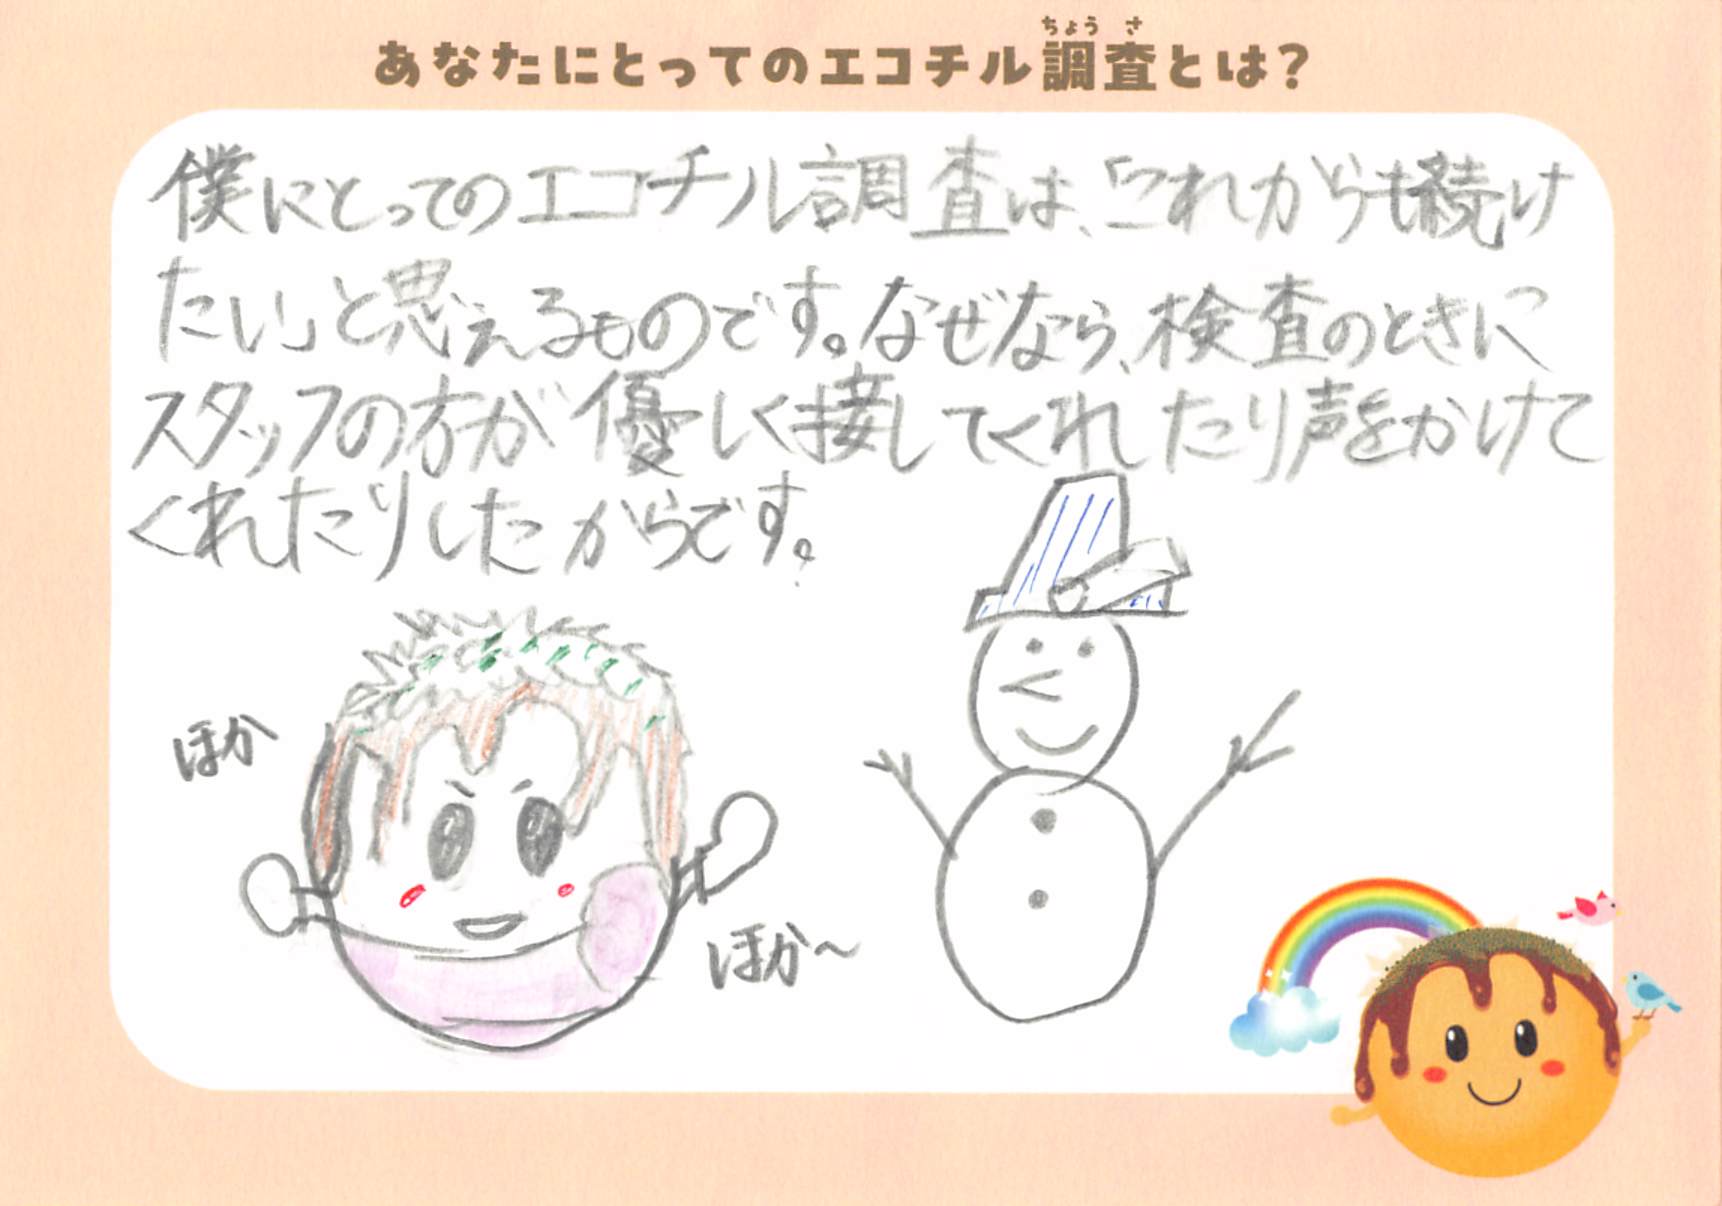 ちょう さ
あなたにとってのエコチル調査とは?
僕にとってのエコチル調査は、「これからも続け
たい」と思えるものです。なぜなら、検査のときに
スタッフの方が優しく接してくれたり声をかけて
くれたりしたからです。
ほか
ほか〜